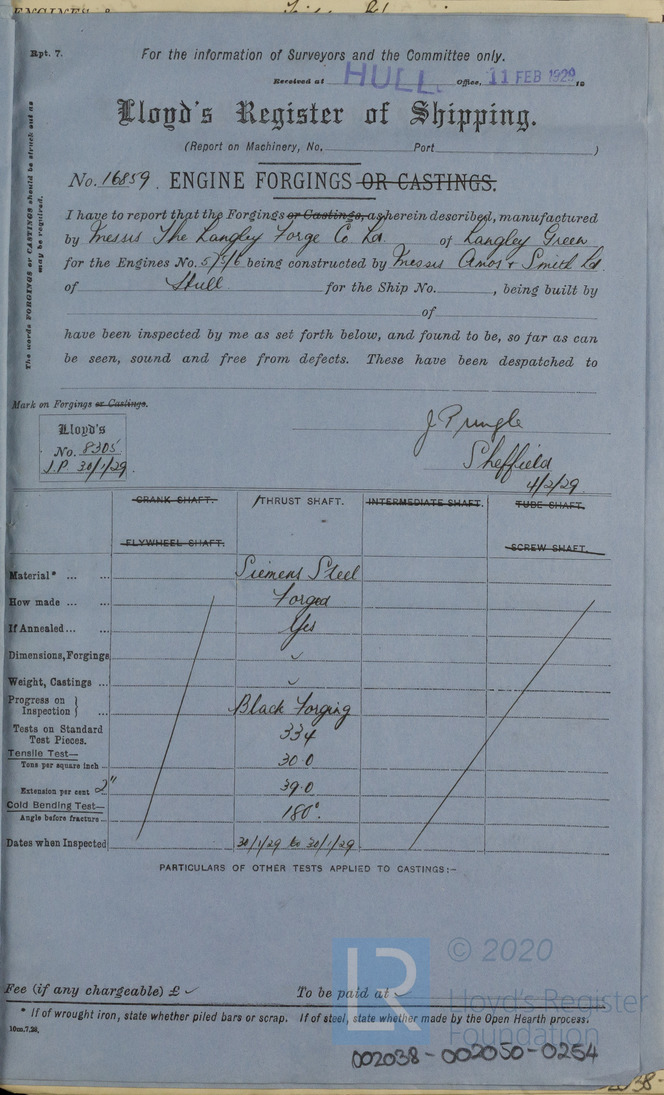 Rpt. 7.
For the information of Surveyors and the Committee only.
Received at HULL. Office, 11 FEB 1929 19
Lloyd's Register of Shipping.
(Report on Machinery, No. Port )
The words FORGINGS or CASTINGS should be struck out as
may be required.
No. 16859. ENGINE FORGINGS OR CASTINGS.
I have to report that the Forgings or Castings, as herein described, manufactured
by Messrs The Langley Forge Co Ld. of Langley Green
for the Engines No. being constructed by Messrs Amos & Smith Ld.
of Hull for the Ship No. , being built by
of
have been inspected by me as set forth below, and found to be, so far as can
be seen, sound and free from defects. These have been despatched to
Mark on Forgings or Castings.
Lloyd's
No. 8305
J.P. 30/1/29
J Pringle
Sheffield
4/2/29
CRANK SHAFT. THRUST SHAFT. INTERMEDIATE SHAFT. TUBE SHAFT.
FLYWHEEL SHAFT. SCREW SHAFT.
Material* ... ... Siemens Steel
How made ... ... Forged
If Annealed ... ... Yes
Dimensions, Forgings
Weight, Castings ...
Progress on Inspection } ... Black Forging
Tests on Standard Test Pieces. 334
Tensile Test—
Tons per square inch 30.0
Extension per cent 2" 39.0
Cold Bending Test—
Angle before fracture 180°.
Dates when Inspected 30/1/29 to 30/1/29
PARTICULARS OF OTHER TESTS APPLIED TO CASTINGS:—
Fee (if any chargeable) £ To be paid at
* If of wrought iron, state whether piled bars or scrap. If of steel, state whether made by the Open Hearth process.
10m,7,28.
© 2020
LR
Lloyd's Register
Foundation
002038-002050-0254